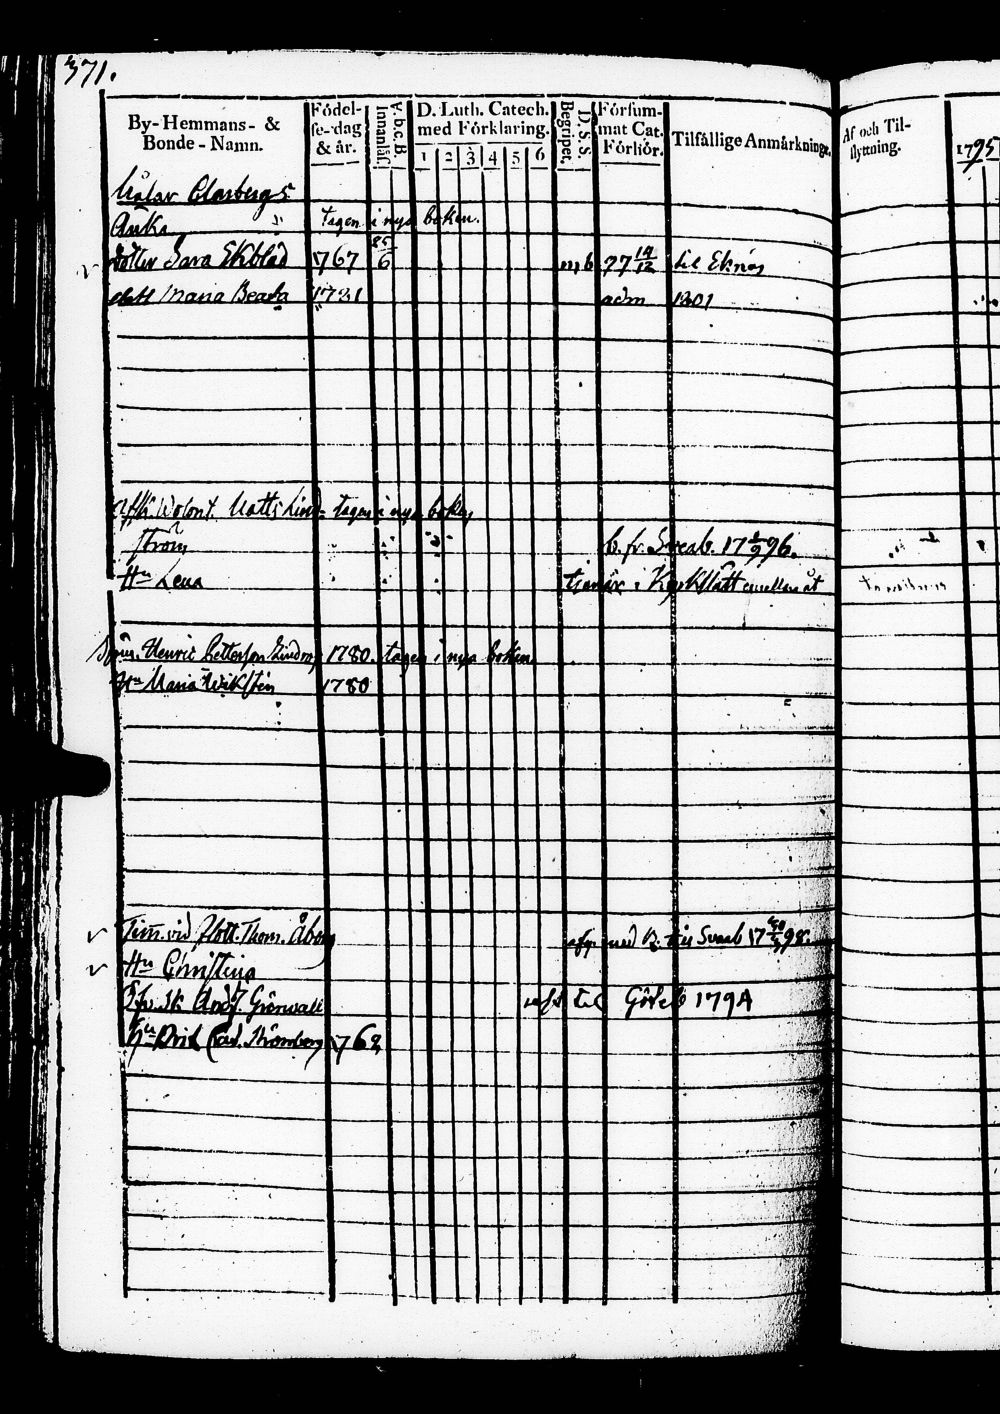 371.
By-Hemmans- & Bonde-Namn.
Födel-se-dag & år.
A.b.c.B. Innanläs.
D. Luth. Catech. med Förklaring.
1 2 3 4 5 6
D. S. S. Begripet.
Försum-mat Cat. Förhör.
Tilfällige Anmärkningar.
Af och Til-flyttning.
1795
Målar Clasbergs
Änka tagen i nya boken.
dotter Sara Ekblad 767 25/6 77 14/12 til Eknäs
Maria Beata 1781 adm 1801
Volont. Matts Lind- tagen i nya boken
ström b. fr. Sveab. 96.
Hu Lena i Kyrkslätt emellan åt
Henric Petterson 1780. tagen i nya boken
Hu Maria Wikstén 1780
Tim. vid flott. Thom. Åberg med til Sveab 98.
Hu Christina
And. Grönvall til Göteb 1794
Hu Brit Strömberg 762